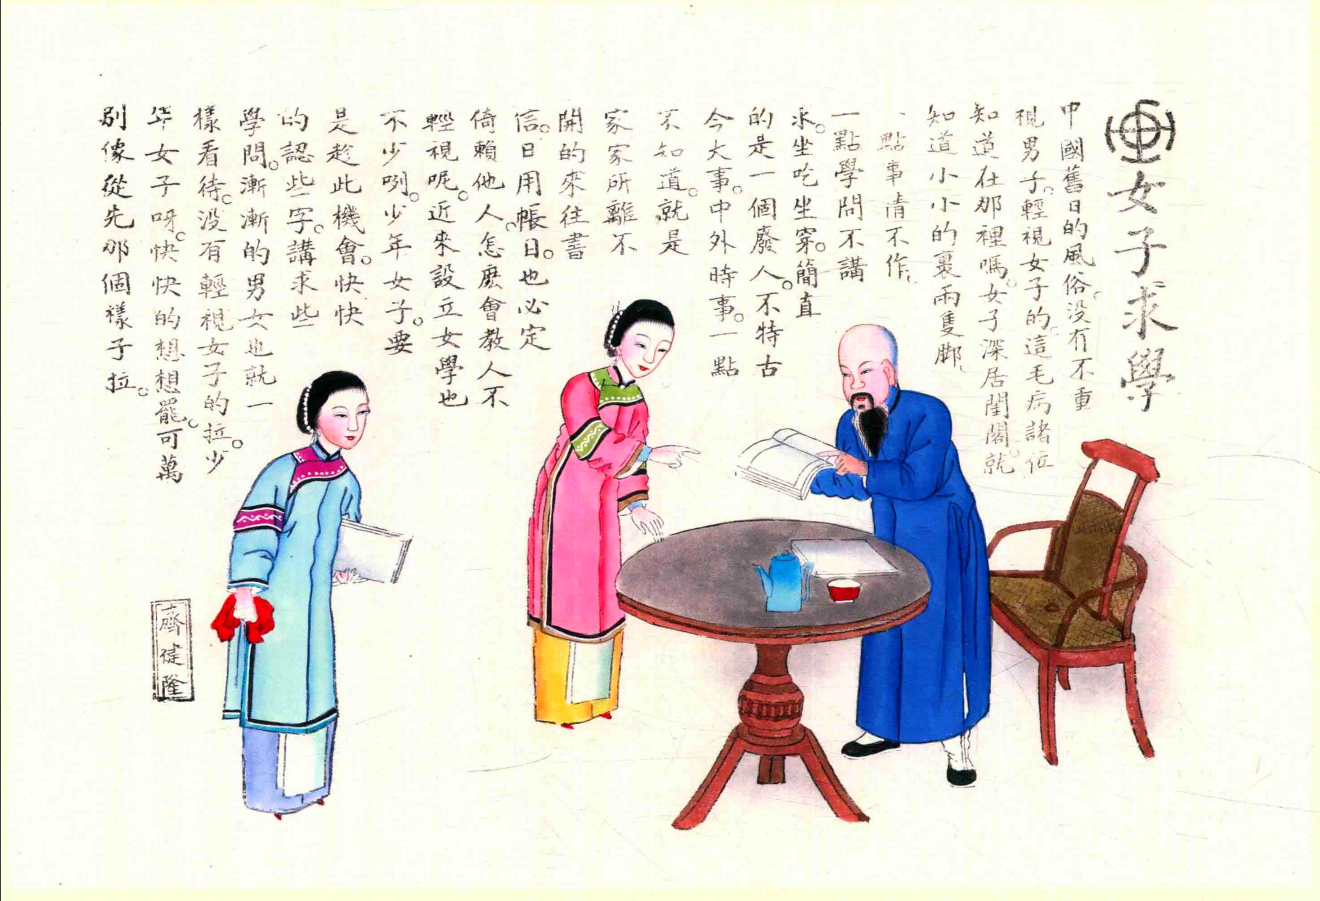 女子求學
中國舊日的風俗。没有不重
視男子。輕視女子的。這毛病諸位
知道在那裡嗎。女子深居閨閣。就
知道小小的裹兩隻脚、
一點事情不作、
一點學問不講
求。坐吃坐穿。簡直
的是一個廢人。不特古
今大事。中外時事。一點
不知道。就是
家家所離不
開的來往書
信。日用帳目。也必定
倚賴他人。怎麽會教人不
輕視呢。近來設立女學也
不少咧。少年女子。要
是趁此機會。快快
的認些字。講求些
學問。漸漸的男女也就一
樣看待。没有輕視女子的拉。少
年女子呀。快快的想想罷。可萬
別像從先那個樣子拉。
齊健隆